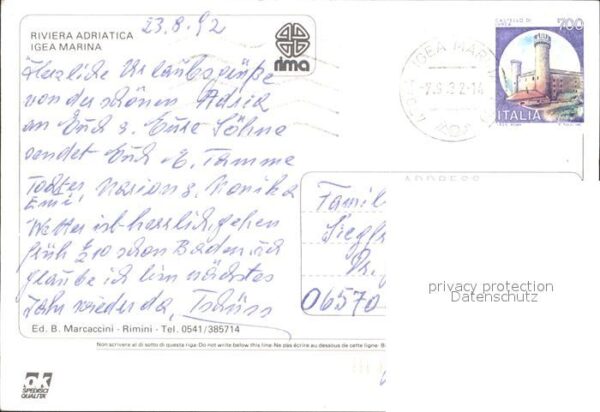 23.8.92
RIVIERA ADRIATICA
IGEA MARINA
rima
Herzliche Urlaubsgrüße
von der schönen Adria
an Euch u. Eure Söhne
sendet Euch E. Tamme
Marion u. Monika
Wetter ist herrlich, gehen
früh schon Baden, ich
glaube ich bin nächstes
Jahr wieder da, Tschüss
Ed. B. Marcaccini - Rimini - Tel. 0541/385714
Non scrivere al di sotto di questa riga - Do not write below this line - Ne pas écrire au dessous de cette ligne - B
ok
SPEDIRCI
QUALITÀ
CASTELLO DI
IVREA
700
ITALIA
IGEA MAR
ADDRESS
Famil
Siegfr
Dr.
06570
privacy protection
Datenschutz